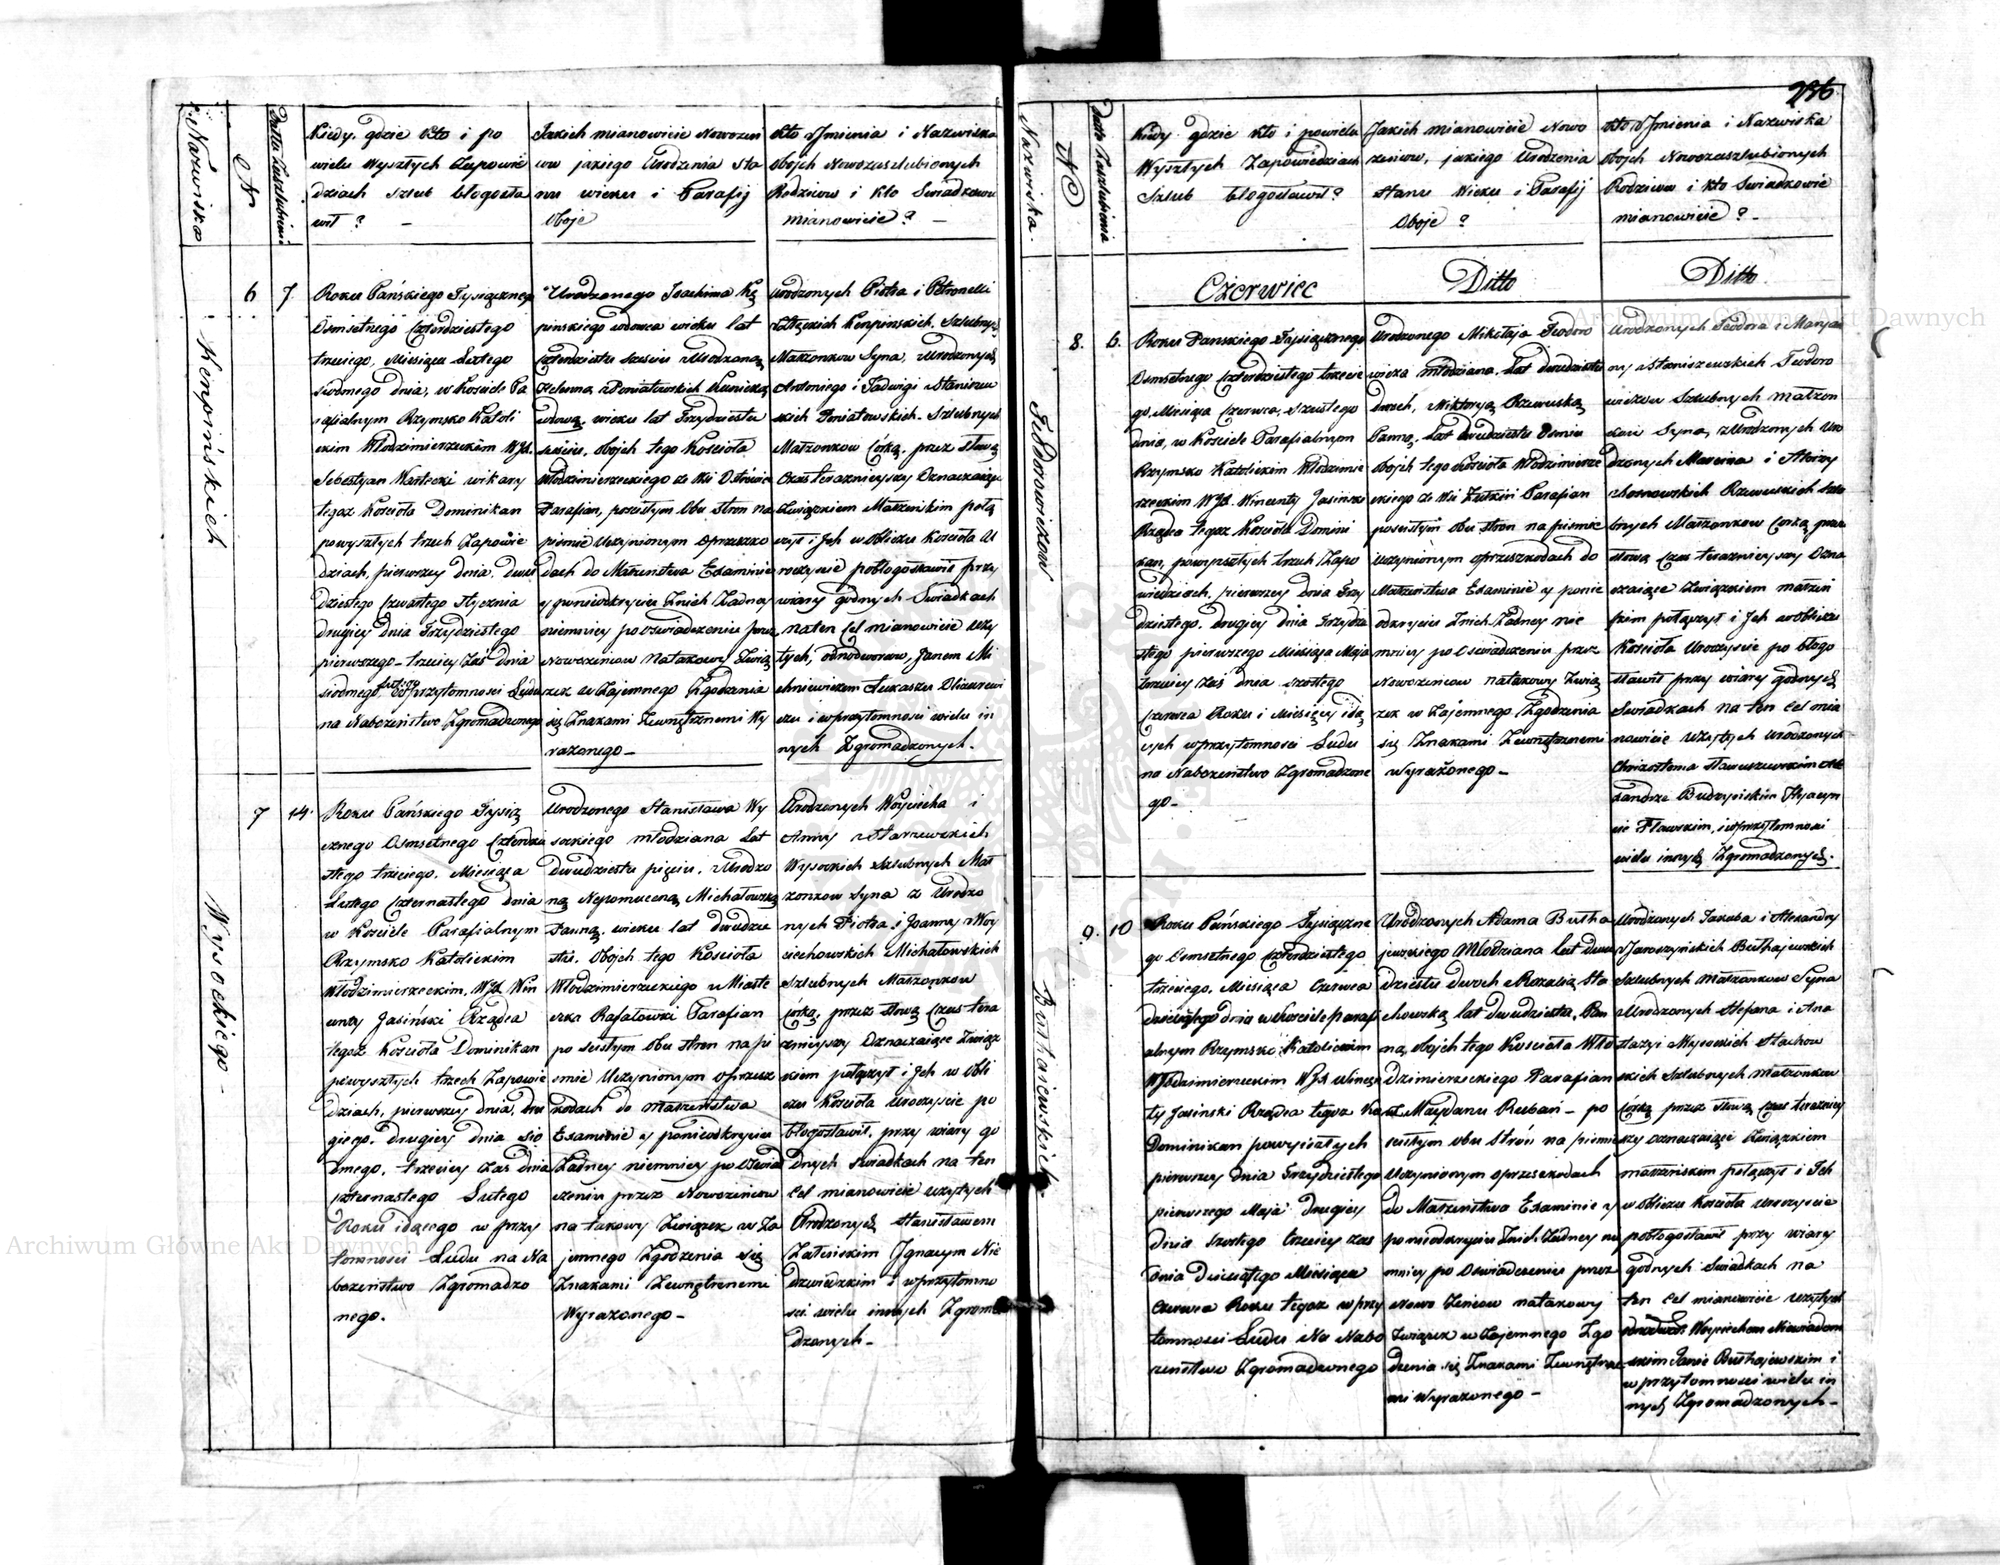 236
Nazwiska
№
Data Zaślubienia
Kiedy, gdzie Kto i po
wielu Wyszłych Zapowie
dziach Szlub błogosła
wił ? –
Jakich mianowicie Nowozeń
ców jakiego Urodzenia Sta
nu wieku i Parafij
Oboje
Kto z Jmienia i Nazwiska
Obojch Nowozaszlubionych
Rodziców i Kto Swiadkowie
mianowicie ? –
Kempińskich
6
7
Roku Pańskiego Tysiącznego
Osmsetnego Czterdziestego
trzeciego, Miesiąca Lutego
siodmego dnia, w Kościele Pa
rafialnym Rzymsko Katoli
ckim Włodzimierzeckim WJX
Sebestyan Warłecki wikary
tegoż Kościoła Dominikan
powyszłych trzech Zapowie
dziach, pierwszey dnia, dwu
dziestego Czwartego Stycznia
drugiey dnia Trzydziestego
pierwszego – trzeciey Zaś dnia
siodmego Lutego w przytomności Ludu
na Nabożeństwo Zgromadzonego
Urodzonego Joachima Kę
pinskiego wdowca wieku lat
Czterdziestu sześciu z Urodzoną
z Poniatowskich
wdową, wieku lat Trzydziestu
sześciu, obojch tego Kościoła
Włodzimierzeckiego ze Wsi
Parafian, poscisłym Obu stron na
piśmie Uczynionym Oprzeszko
dach do Małżeństwa Examinie
y ponieodkryciu Znich Żadney
niemniey po oswiadczeniu przez
Nowożeńcow Natakowy Zwią
zek w Zajemnego Zgodzenia
się Znakami Zewnętrznemi Wy
rażonego –
Urodzonych Piotra i Petronelli
Kempinskich, Szlubnych
Małżonkow Syna, z Urodzonych
Antoniego i Jadwigi z Staniszew
skich Poniatowskich. Szlubnych
Małżonkow Córką. przez słowa
Czas teraznieyszy Oznaczaiące
Związkiem Małżeńskim połą
czył i Jch w obliczu Kościoła U
roczyscie pobłogosławił przy
wiary godnych Swiadkach
na ten Cel mianowicie Uży
tych, odnodworcow, Janem Mi
chniewiczem Łukaszu
czu i w przytomności wielu in
nych Zgromadzonych.
Wysockiego –
7
14.
Roku Pańskiego Tysią
cznego Osmsetnego Czterdzie
stego trzeciego. Miesiąca
Lutego Czternastego dnia
w Kościele Parafialnym
Rzymsko Katolickim
Włodzimierzeckim, WJX Win
centy Jasiński Rządca
tegoż Kościoła Dominikan
powyszłych trzech Zapowie
dziach, pierwszey dnia, dru
giego. drugiey dnia sio
dmego, trzeciey Zaś dnia
czternastego Lutego
Roku idącego w przy
tomności Ludu na Na
bożeństwo Zgromadzo
nego.
Urodzonego Stanisława Wy
sockiego młodziana Lat
Dwudziestu pięciu, z Urodzo
ną Nepomuceną Michałowską
Panną, wieku lat dwudzie
stu. Obojch tego Kościoła
Włodzimierzeckiego z Miaste
czka Rafałowki Parafian
po scisłym Obu stron na pi
smie Uczynionym oprzesz
kodach do małżeństwa
Examinie y ponieodkryciu
Żadney niemniey po Oświad
czeniu przez Nowożeńcow
na takowy Związek w Za
jemnego Zgodzenia się
Znakami Zewnętrznemi
Wyrażonego –
Urodzonych Woyciecha i
Anny z Starzewskich
Wysockich Szlubnych Mał
żonkow Syna z Urodzo
nych Piotra i Joanny z Woy
ciechowskich Michałowskich
Szlubnych Małżonkow
Córką, przez słowa Czas tera
znieyszy Oznaczaiące Związ
kiem połączył i Jch w obli
czu Kościoła Uroczyscie po
błogosławił, przy wiary go
dnych Swiadkach na ten
Cel mianowicie użytych
Urodzonych Stanisławem
Zaleskim Ignacym Nie
dzwiedzkim i w przytomno
ści wielu innych Zgroma
dzonych –
Nazwiska
№
Data Zaślubienia
Kiedy gdzie Kto i powielu
Wyszłych Zapowiedziach
Szlub błogosławił ?
Jakich mianowicie Nowo
żeńców, jakiego Urodzenia
Stanu Wieku i Parafij
Oboje ?
Kto z Jmienia i Nazwiska
Obojch Nowozaszlubionych
Rodziców i Kto Swiadkowie
mianowicie ? –
Czerwiec
Ditto
Ditto
Teodorowiczow
8.
6.
Roku Pańskiego Tysiącznego
Osmsetnego Czterdziestego trzecie
go, Miesiąca Czerwca, Szostego
dnia, w Kościele Parafialnym
Rzymsko Katolickim Włodzimie
rzeckim WJX Wincenty Jasinski
Rządca tegoż Kościoła Domini
kan, powyszłych trzech Zapo
wiedziach, pierwszey dnia Trzy
dziestego, drugiey dnia Trzydzie
stego pierwszego Miesiąca Maja
trzeciey Zaś dnia szostego
Czerwca Roku i Miesiąca idą
cych w przytomności Ludu
na Nabożeństwo Zgromadzone
go –
Urodzonego Mikołaja Teodoro
wicza młodziana, Lat dwudziestu
dwoch, z Wiktoryą Rzewuską
Panną, Lat dwudziestu Osmiu
obojch tego Kościoła Włodzimierze
ckiego ze Wsi Parafian
poscisłym obu stron na piśmie
uczynionym oprzeszkodach do
Małżeństwa Examinie y ponie
odkryciu Znich Żadney nie
mniey po Oświadczeniu przez
Nowożeńcow natakowy Zwią
zek w Zajemnego Zgodzenia
się Znakami Zewnętrznemi
wyrażonego –
Urodzonych Teodora i Maryan
ny z Staniszewskich Teodoro
wiczow Szlubnych małżon
kow Syna, z Urodzonych Uro
dzonych Marcina i
Rzewuskich Szlu
bnych Małżonkow Córką przez
słowa Czas teraznieyszy Ozna
czaiące Związkiem małżeń
skim połączył i Jch w obliczu
Kościoła Uroczyscie po błogo
sławił przy wiary godnych
Swiadkach na ten Cel mia
nowicie użytych Urodzonych
Chrizostoma
xandrze Budzyńskim Hyacyn
cie Sławskim, i w przytomności
wielu innych Zgromadzonych.
Buthaiewskich
9.
10
Roku Pańskiego Tysiączne
go Osmsetnego Czterdziestego
trzeciego, Miesiąca Czerwca
dziesiątego dnia w Kościele parafi
alnym Rzymsko Katolickim
Włodzimierzeckim WJX Wincen
ty Jasiński Rządca tegoż Kościoła
Dominikan powyszłych
pierwszey dnia Trzydziestego
pierwszego Maja drugiey
dnia szostego trzeciey zaś
dnia dziesiątego Miesiąca
Czerwca Roku tegoż w przy
tomności Ludu Na Nabo
żeństwo Zgromadzonego
Urodzonych Adama Butha
jewskiego Młodziana Lat dwu
dziestu dwoch z Rozalią Sta
chowską lat dwudziestu, Pan
ną, obojch tego Kościoła Wło
dzimierzeckiego Parafian
z Maydanu – po
scisłym obu stron na piśmie
Uczynionym oprzeszkodach
do Małżeństwa Examinie y
ponieodkryciu Znich Żadney nie
mniey po Oświadczeniu przez
Nowo Żeńcow natakowy
Związek w Zajemnego Zgo
dzenia się Znakami Zewnętrzne
mi Wyrażonego –
Urodzonych Jakuba i Alexandry
z Jaroszyńskich Buthajewskich
Szlubnych małżonkow Syna
z Urodzonych Stefana i Ana
stazyi Stachow
skich Szlubnych małżonkow
Córką przez słowa Czas teraźniey
szy oznaczaiące Związkiem
małżeńskim połączył i Jch
w obliczu Kościoła uroczyscie
pobłogosławił przy wiary
godnych Swiadkach na
ten Cel mianowicie użytych
Woyciechem Niewiadom
skim Janie Buthajewskim i
w przytomności wielu in
nych Zgromadzonych –
Archiwum Główne Akt Dawnych
Archiwum Główne Akt Dawnych